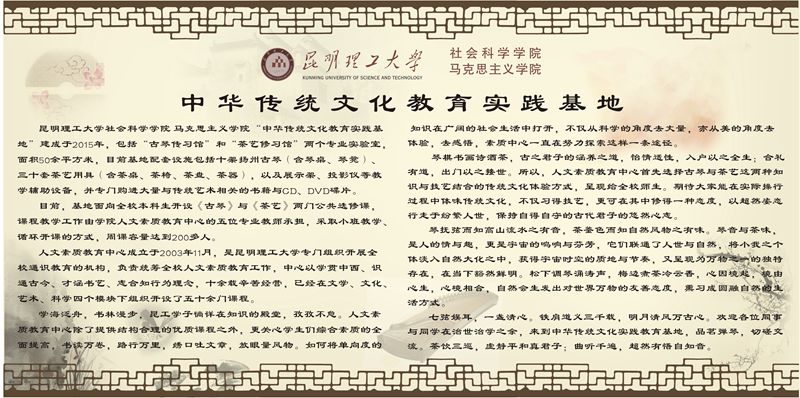 昆明理工大学
KUNMING UNIVERSITY OF SCIENCE AND TECHNOLOGY
社会科学学院
马克思主义学院
中华传统文化教育实践基地
昆明理工大学社会科学学院 马克思主义学院“中华传统文化教育实践基
地”建成于2015年，包括“古琴传习馆”和“茶艺修习馆”两个专业实验室，
面积50余平方米，目前基地配套设施包括十架扬州古琴（含琴桌、琴凳）、
三十套茶艺用具（含茶桌、茶椅、茶盘、茶器），以及展示架、投影仪等教
学辅助设备，并专门购进大量与传统艺术相关的书籍与CD、DVD碟片。
目前，基地面向全校本科生开设《古琴》与《茶艺》两门公共选修课，
课程教学工作由学院人文素质教育中心的五位专业教师承担，采取小班教学、
循环开课的方式，周课容量达到200多人。
人文素质教育中心成立于2003年11月，是昆明理工大学专门组织开展全
校通识教育的机构，负责统筹全校人文素质教育工作，中心以学贯中西、识
通古今、才涵书艺、志合知行为理念，十余载辛苦经营，已经在文学、文化、
艺术、科学四个模块下组织开设了五十余门课程。
学海泛舟，书林漫步，昆工学子徜徉在知识的殿堂，孜孜不怠。人文素
质教育中心除了提供结构合理的优质课程之外，更关心学生们综合素质的全
面提高，书读万卷，路行万里，绣口吐文章，放眼量风物。如何将单向度的
知识在广阔的社会生活中打开，不仅从科学的角度去丈量，亦从美的角度去
体验，去感悟，素质中心一直在努力探索这样一条途径。
琴棋书画诗酒茶，古之君子的涵养之道，怡情适性，入户以之全生；合礼
有道，出门以之接世。所以，人文素质教育中心首先选择古琴与茶艺这两种知
识与技艺结合的传统文化体验方式，呈现给全校师生。期待大家能在实际操行
过程中体味传统文化，不仅习得技艺，更可在其中修得一种态度，以超然姿态
行走于纷繁人世，保持自得自守的古代君子的悠然心态。
琴抚弦而知高山流水之有音，茶鉴色而知自然风物之有味。琴音与茶味，
是人的情与趣，更是宇宙的鸣响与芬芳，它们联通了人世与自然，将小我之个
体淡入自然大化之中，获得宇宙时空的质地与节奏，又呈现为万物之一的独特
存在，在当下豁然鲜明。松下调琴涌涛声，梅边煮茶冷云香，心因境起，境由
心生，心境相合，自然会生发出对世界万物的友善态度，熏习成圆融自然的生
活方式。
七弦娱耳，一盏清心。铁肩道义三千载，明月清风万古心。欢迎各位同事
与同学在治世治学之余，来到中华传统文化实践教育基地，品茗弹琴，切磋交
流。茶饮三巡，虚静平和真君子；曲听千遍，超然有悟自知音。